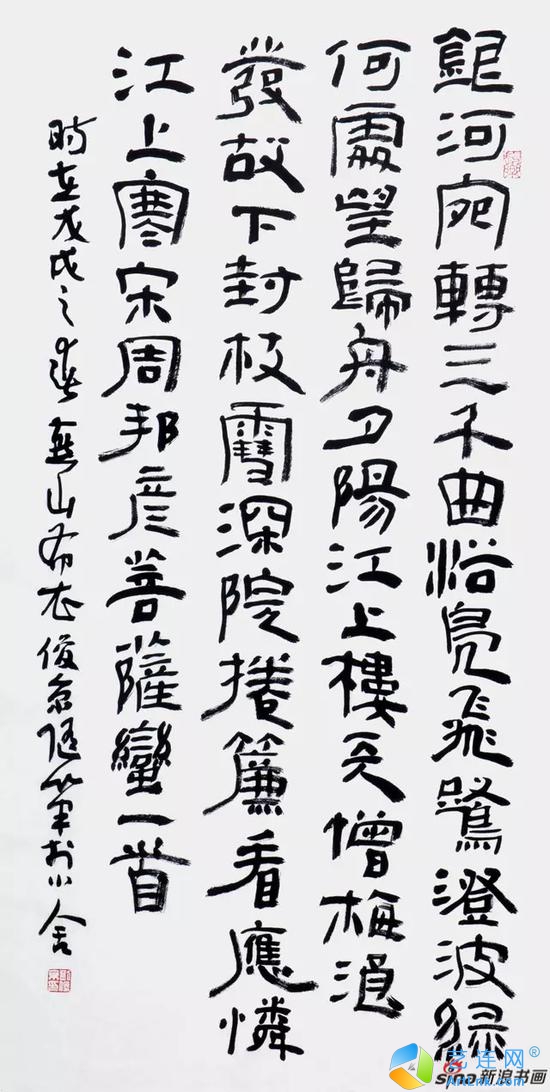 銀河宛轉三千曲浴鳧飛鷺澄波綠
何處望歸舟夕陽江上樓天憎梅浪
發故下封枝雪深院捲簾看應憐
江上寒宋周邦彥菩薩蠻一首
時在戊戌之春燕山布衣俊京随筆於小舍
艺连网
sina新浪书画